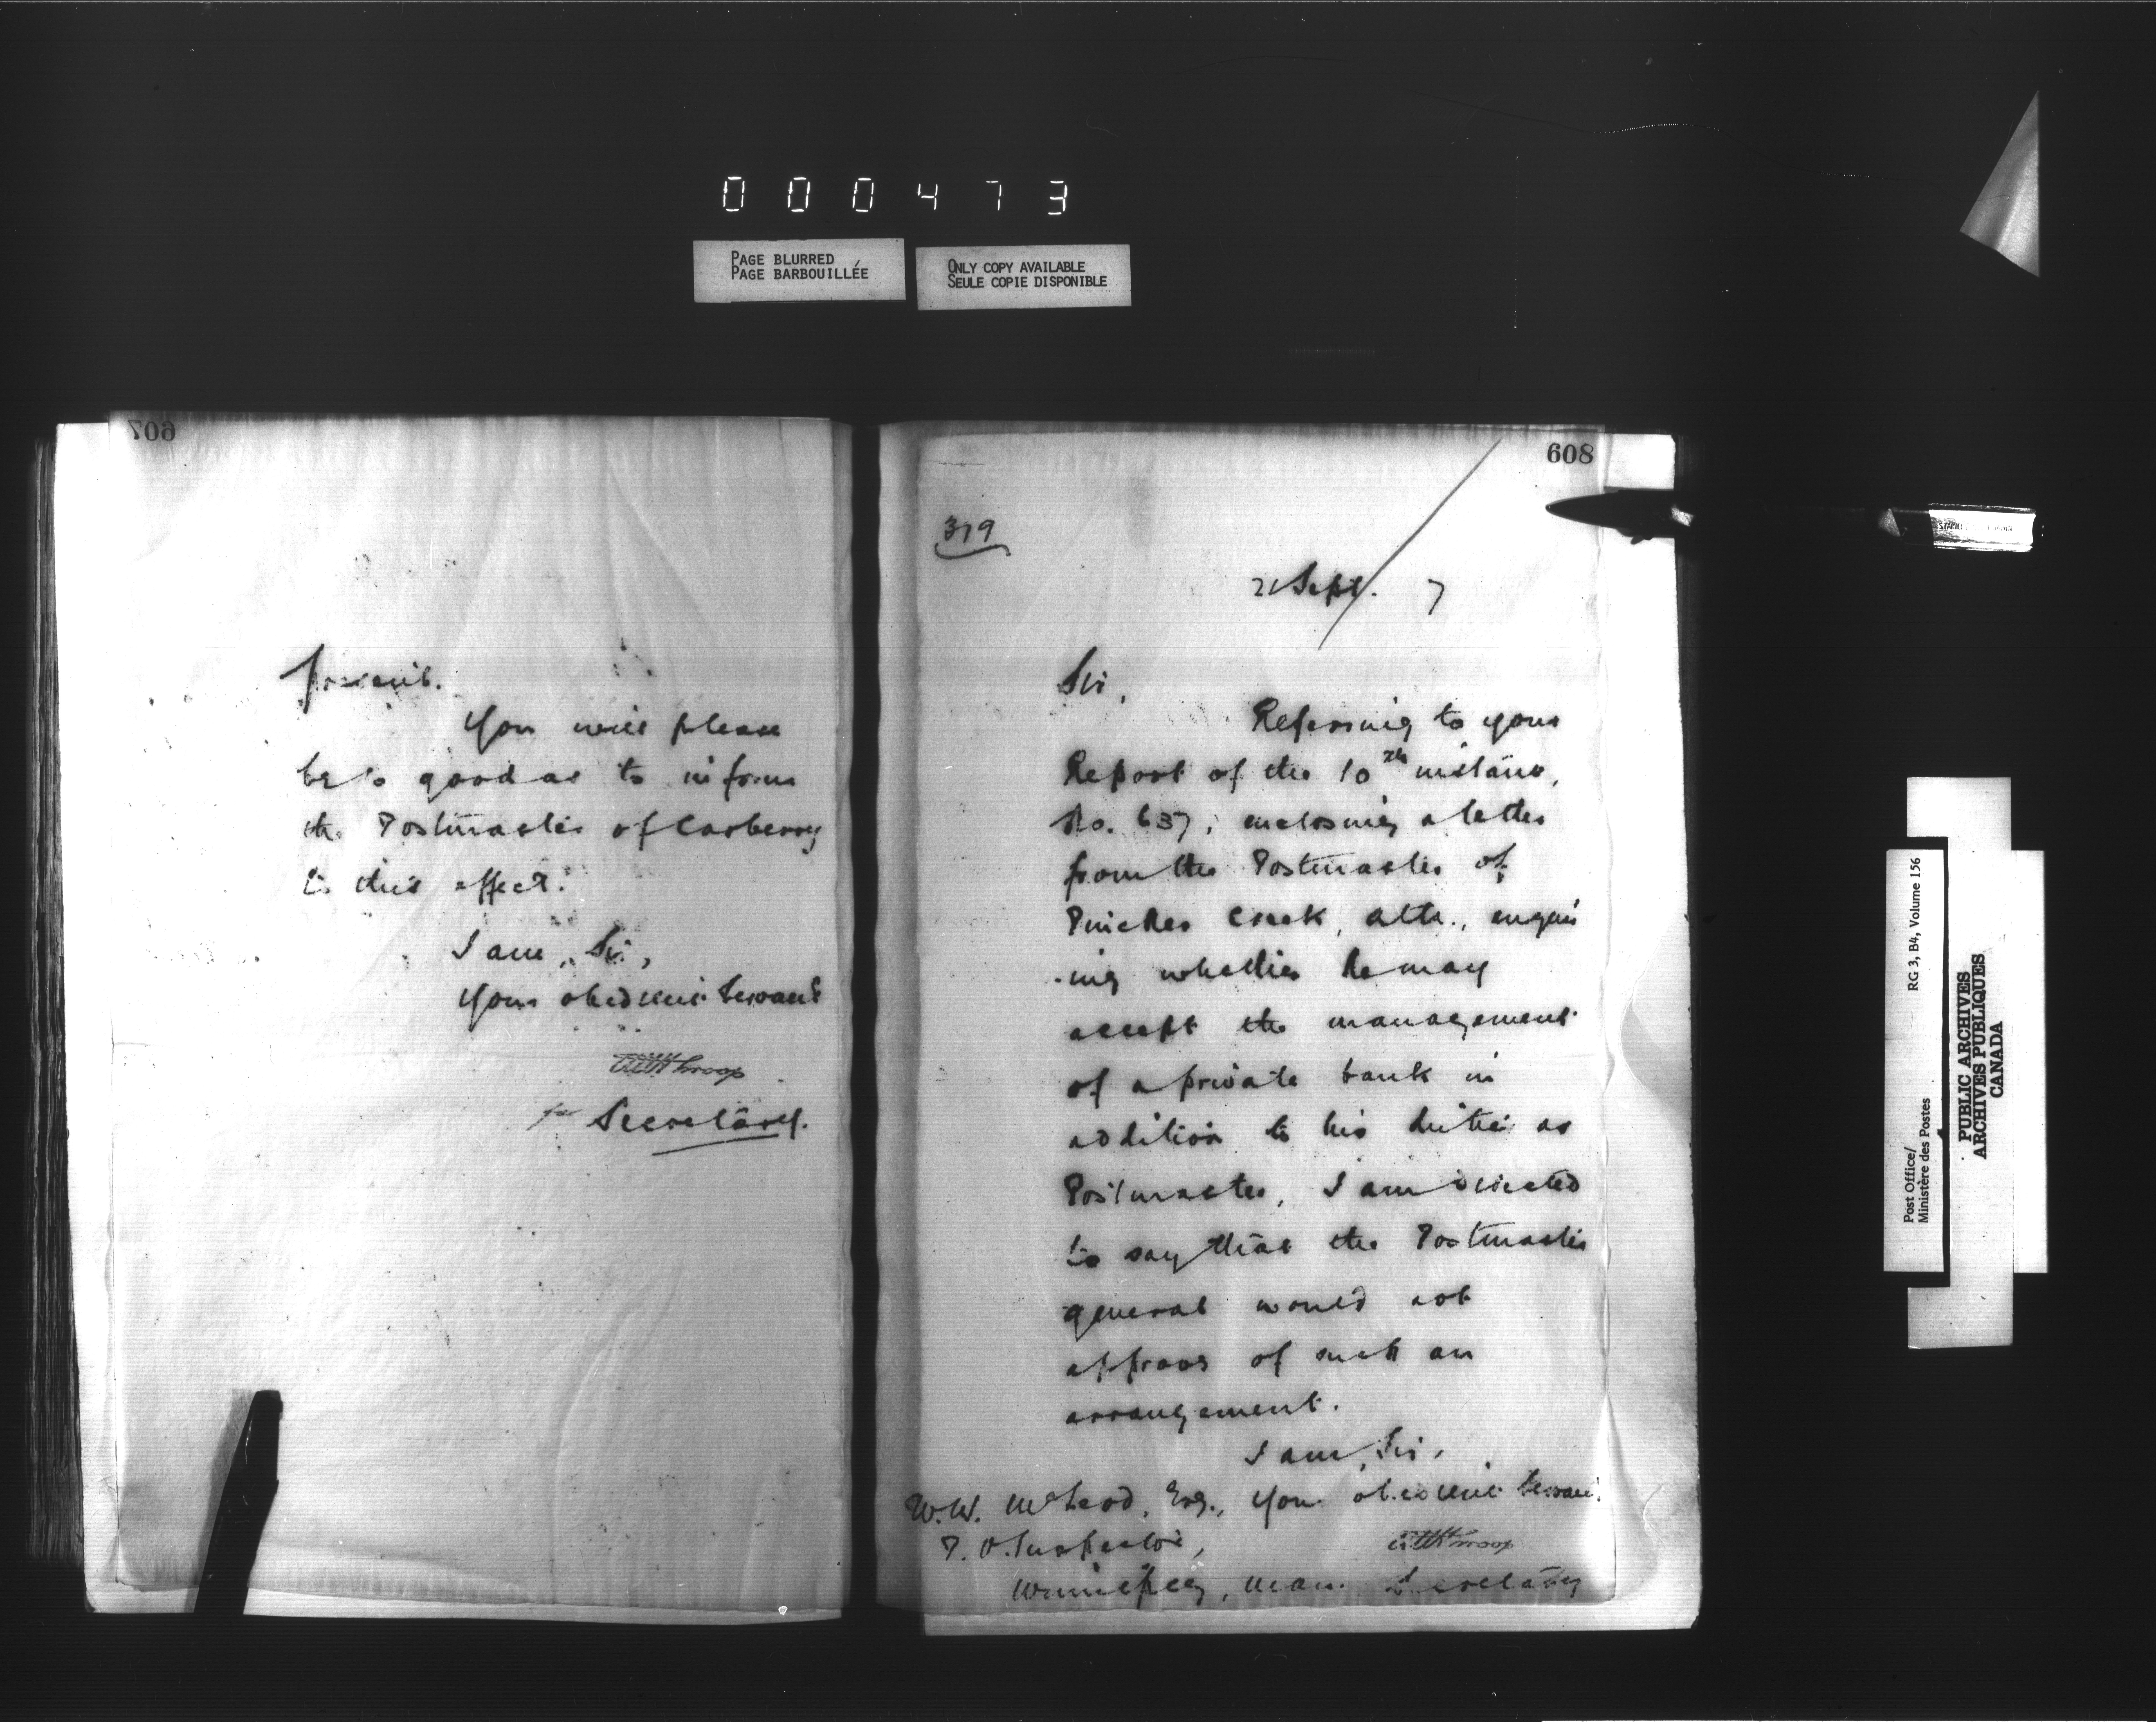 000473
PAGE BLURRED
PAGE BARBOUILLÉE
ONLY COPY AVAILABLE
SEULE COPIE DISPONIBLE
607
present.
You will please
be so good as to inform
the Postmaster of Carberry
to this effect.
I am, Sir,
Your obedient Servant
for Secretary.
608
319
21 Sept. 7
Sir,
Referring to your
Report of the 10th instant,
No. 637, enclosing a letter
from the Postmaster of
Pincher Creek, Alta., enquir
-ing whether he may
accept the management
of a private bank in
addition to his duties as
Postmaster, I am directed
to say that the Postmaster
General would not
approve of such an
arrangement.
I am, Sir,
Your obedient Servant
Secretary
W.W. McLeod, Esq.,
P.O. Inspector,
Winnipeg, Man.
Post Office/
Ministère des Postes
RG 3, B4, Volume 156
PUBLIC ARCHIVES
ARCHIVES PUBLIQUES
CANADA